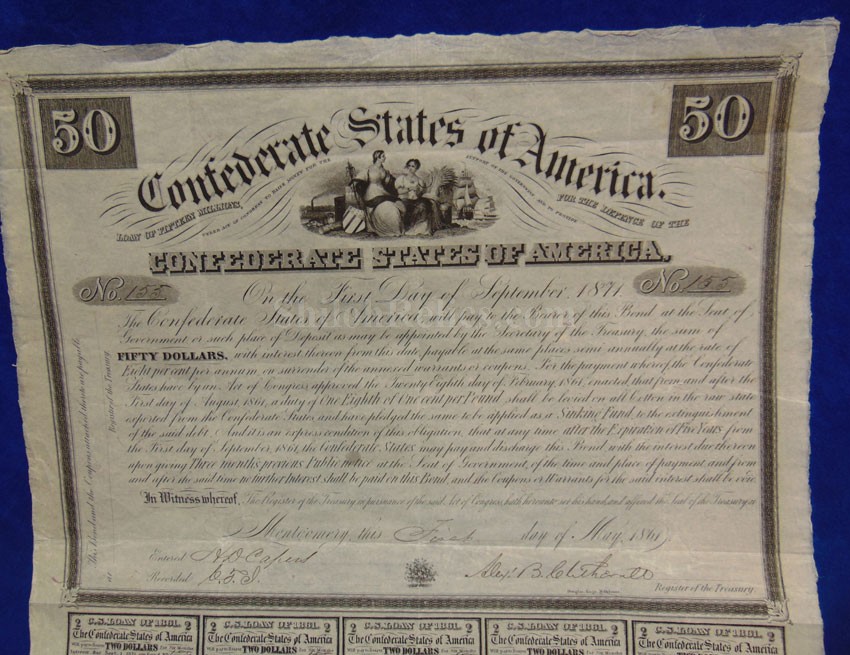 50
50
Confederate States of America.
LOAN OF FIFTEEN MILLIONS,
UNDER AN ACT OF CONGRESS TO RAISE MONEY FOR THE
SUPPORT OF THE GOVERNMENT AND TO PROVIDE
FOR THE DEFENCE OF THE
CONFEDERATE STATES OF AMERICA.
No. 155
No. 155
On the First Day of September, 1871
The Confederate States of America will pay to the Bearer of this Bond at the Seat of
Government or such place of Deposit as may be appointed by the Secretary of the Treasury, the sum of
FIFTY DOLLARS, with interest thereon from this date payable at the same places semi annually at the rate of
Eight per cent per annum on surrender of the annexed warrants or coupons. For the payment whereof the Confederate
States have by an Act of Congress approved the Twenty Eighth day of February, 1861, enacted that from and after the
First day of August 1861, a duty of One Eighth of One cent per Pound shall be levied on all Cotton in the raw state
exported from the Confederate States and have pledged the same to be applied as a Sinking Fund, to the extinguishment
of the said debt. And it is an express condition of this obligation, that at any time after the Expiration of Five Years from
the First day of September, 1861, the Confederate States may pay and discharge this Bond with the interest due thereon
upon giving Three months previous Public notice at the Seat of Government, of the time and place of payment and from
and after the said time no further Interest shall be paid on this Bond, and the Coupons or Warrants for the said interest shall be void.
In Witness whereof, The Register of the Treasury in pursuance of the said Act of Congress, hath hereunto set his hand and affixed the Seal of the Treasury at
Montgomery, this First day of May, 1861
Entered H D Capers
Recorded C.T.J.
Alex. B. Clitherall
Register of the Treasury.
Register of the Treasury
2 C.S. LOAN OF 1861. 2
The Confederate States of America
TWO DOLLARS
2 C.S. LOAN OF 1861. 2
The Confederate States of America
TWO DOLLARS
2 C.S. LOAN OF 1861. 2
The Confederate States of America
TWO DOLLARS
2 C.S. LOAN OF 1861. 2
The Confederate States of America
TWO DOLLARS
2 C.S. LOAN OF 1861. 2
The Confederate States of America
TWO DOLLARS